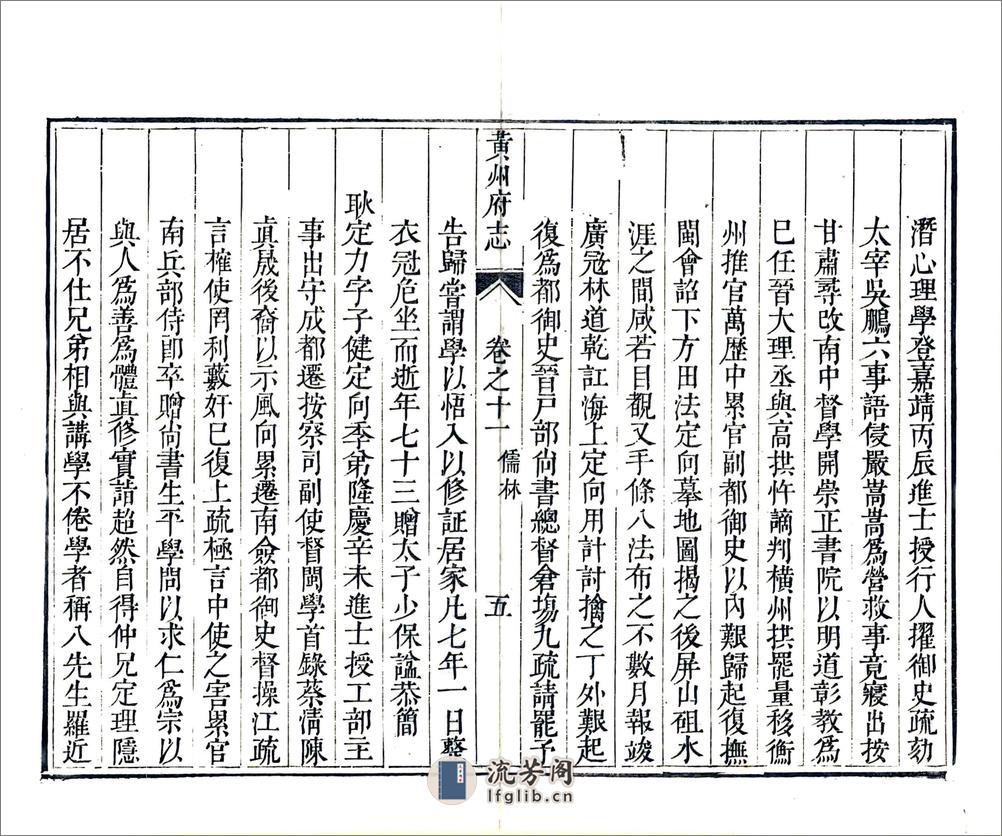 潛心理學登嘉靖丙辰進士授行人擢御史疏劾
太宰吳鵬六事語侵嚴嵩嵩爲營救事竟寢出按
甘肅尋改南中督學開崇正書院以明道彰教爲
巳任晉大理丞與高拱忤謫判橫州拱罷量移衡
州推官萬歷中累官副都御史以內艱歸起復撫
閩會詔下方田法定向摹地圖揭之後屏山砠水
涯之間咸若目覩又手條八法布之不數月報竣
廣冦林道乾訌海上定向用計討擒之丁外艱起
復爲都御史晉戸部尚書總督倉塲九疏請罷予
黃州府志 卷之十一 儒林 五
告歸嘗謂學以悟入以修証居家凡七年一日整
衣冠危坐而逝年七十三贈太子少保諡恭簡
耿定力字子健定向季弟隆慶辛未進士授工部主
事出守成都遷按察司副使督閩學首錄蔡淸陳
眞晟後裔以示風向累遷南僉都御史督操江疏
言榷使罔利藪奸巳復上疏極言中使之害累官
南兵部侍郎卒贈尚書生平學問以求仁爲宗以
與人爲善爲體眞修實詣超然自得仲兄定理隱
居不仕兄弟相與講學不倦學者稱八先生羅近
流芳阁
lfglib.cn